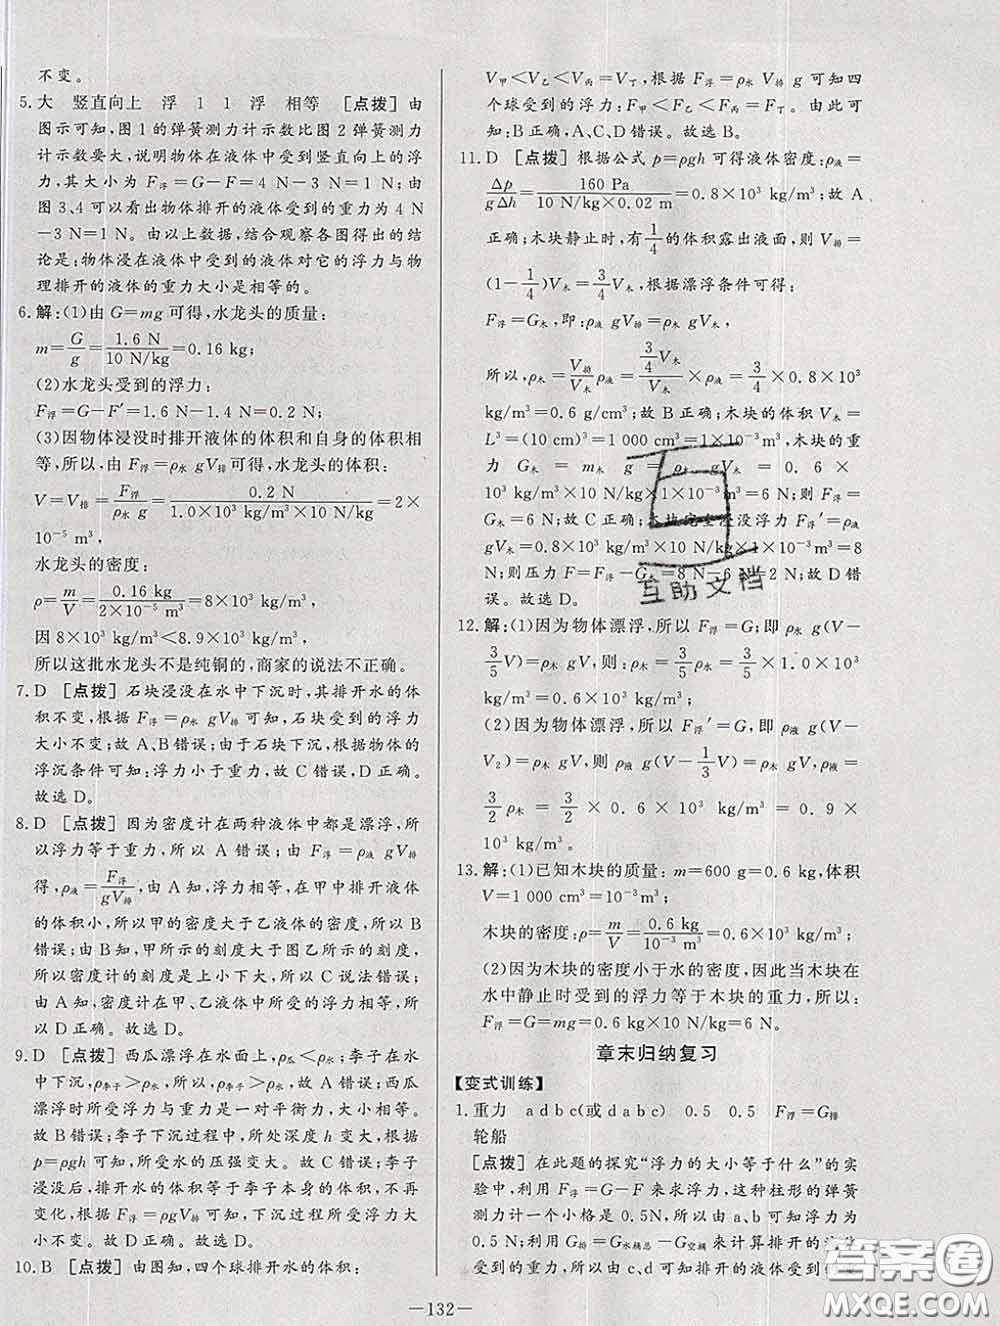 不变。
5.大 竖直向上 浮 1 1 浮 相等 [点拨] 由
图示可知,图1的弹簧测力计示数比图2弹簧测力
计示数要大,说明物体在液体中受到竖直向上的浮
力,其大小为 F浮=G-F=4 N-3 N=1 N。由
图3、4可以看出物体排开的液体受到的重力为4 N
-3 N=1 N。由以上数据,结合观察各图得出的结
论是:物体浸在液体中受到的液体对它的浮力与物
理排开的液体的重力大小是相等的。
6.解:(1)由G=mg可得,水龙头的质量:
m=G/g=1.6 N/10 N/kg=0.16 kg;
(2)水龙头受到的浮力:
F浮=G-F′=1.6 N-1.4 N=0.2 N;
(3)因物体浸没时排开液体的体积和自身的体积相
等,所以,由 F浮=ρ水 gV排可得,水龙头的体积:
V=V排=F浮/ρ水 g=0.2 N/1.0×10³ kg/m³×10 N/kg=2×
10⁻⁵ m³,
水龙头的密度:
ρ=m/V=0.16 kg/2×10⁻⁵ m³=8×10³ kg/m³,
因 8×10³ kg/m³<8.9×10³ kg/m³,
所以这批水龙头不是纯铜的,商家的说法不正确。
7.D [点拨] 石块浸没在水中下沉时,其排开水的体
积不变,根据 F浮=ρ水 gV排可知,石块受到的浮力
大小不变;故A、B错误;由于石块下沉,根据物体的
浮沉条件可知:浮力小于重力,故C错误,D正确。
故选D。
8.D [点拨] 因为密度计在两种液体中都是漂浮,所
以浮力等于重力,所以A错误;由 F浮=ρ液 gV排
得,ρ液=F浮/gV排,由A知,浮力相等,在甲中排开液体
的体积小,所以甲的密度大于乙液体的密度,所以B
错误;由B知,甲所示的刻度大于图乙所示的刻度,
所以密度计的刻度是上小下大,所以C说法错误;
由A知,密度计在甲、乙液体中所受的浮力相等,所
以D正确。故选D。
9.D [点拨] 西瓜漂浮在水面上,ρ瓜<ρ水;李子在水
中下沉,ρ李子>ρ水,所以ρ李子>ρ瓜,故A错误;西瓜
漂浮时所受浮力与重力是一对平衡力,大小相等,
故B错误;李子下沉过程中,所处深度h变大,根据
p=ρgh可知,所受水的压强变大,故C错误;李子
浸没后,排开水的体积等于李子本身的体积,不再
变化,根据F浮=ρgV排可知,下沉过程所受浮力大
小不变,故D正确。故选D。
10.B [点拨] 由图知,四个球排开水的体积:
V甲<V乙<V丙=V丁,根据F浮=ρ水 V排 g可知四
个球受到的浮力:F甲<F乙<F丙=F丁。由此可
知:B正确,A、C、D错误。故选B。
11.D [点拨] 根据公式p=ρgh可得液体密度:ρ液=
Δp/gΔh=160 Pa/10 N/kg×0.02 m=0.8×10³ kg/m³;故A
正确;木块静止时,有1/4的体积露出液面,则V排=
(1-1/4)V木=3/4V木,根据漂浮条件可得:
F浮=G木,即:ρ液 gV排=ρ木 gV木,
所以,ρ木=V排/V木ρ液=3/4V木/V木×ρ液=3/4×0.8×10³
kg/m³=0.6×10³ kg/m³;故B正确;木块的体积V木=
L³=(10 cm)³=1 000 cm³=1×10⁻³m³,木块的重
力 G木=m木 g=ρ木 gV木=0.6×
10³ kg/m³×10 N/kg×1×10⁻³ m³=6 N;则 F浮=
G木=6 N;故C正确;木块完全浸没浮力F浮′=ρ液
gV木=0.8×10³ kg/m³×10 N/kg×1×10⁻³m³=8
N;则压力F=F浮-G木=8 N-6 N=2 N,故D错
误。故选D。
12.解:(1)因为物体漂浮,所以F浮=G;即ρ水 g(V-
3/5V)=ρ木 gV,则:ρ木=3/5ρ水=3/5×1.0×10³ kg/m³
=0.6×10³ kg/m³;
(2)因为物体漂浮,所以F浮′=G,即ρ液 g(V-
V₂)=ρ木 gV,则ρ液 g(V-1/3V)=ρ木 gV,ρ液=
3/2 ρ木=3/2×0.6×10³ kg/m³=0.9×
10³ kg/m³;
13.解:(1)已知木块的质量:m=600 g=0.6 kg,体积
V=1 000 cm³=10⁻³m³,
木块的密度:ρ=m/V=0.6 kg/10⁻³ m³=0.6×10³ kg/m³;
(2)因为木块的密度小于水的密度,因此当木块在
水中静止时受到的浮力等于木块的重力,所以:
F浮=G=mg=0.6 kg×10 N/kg=6 N。
章末归纳复习
【变式训练】
1.重力 a d b c(或d a b c) 0.5 0.5 F浮=G排
轮船
[点拨] 在此题的探究“浮力的大小等于什么”的实
验中,利用F浮=G-F来求浮力,这种柱形的弹簧
测力计一个小格是0.5N,所以由a、b可知浮力为
0.5 N;利用G排=G水桶总-G空桶来计算排开的液体
受到的重力,所以由c、d可知排开的液体受到的重
—132—
互助文档
答案圈
MXQE.COM